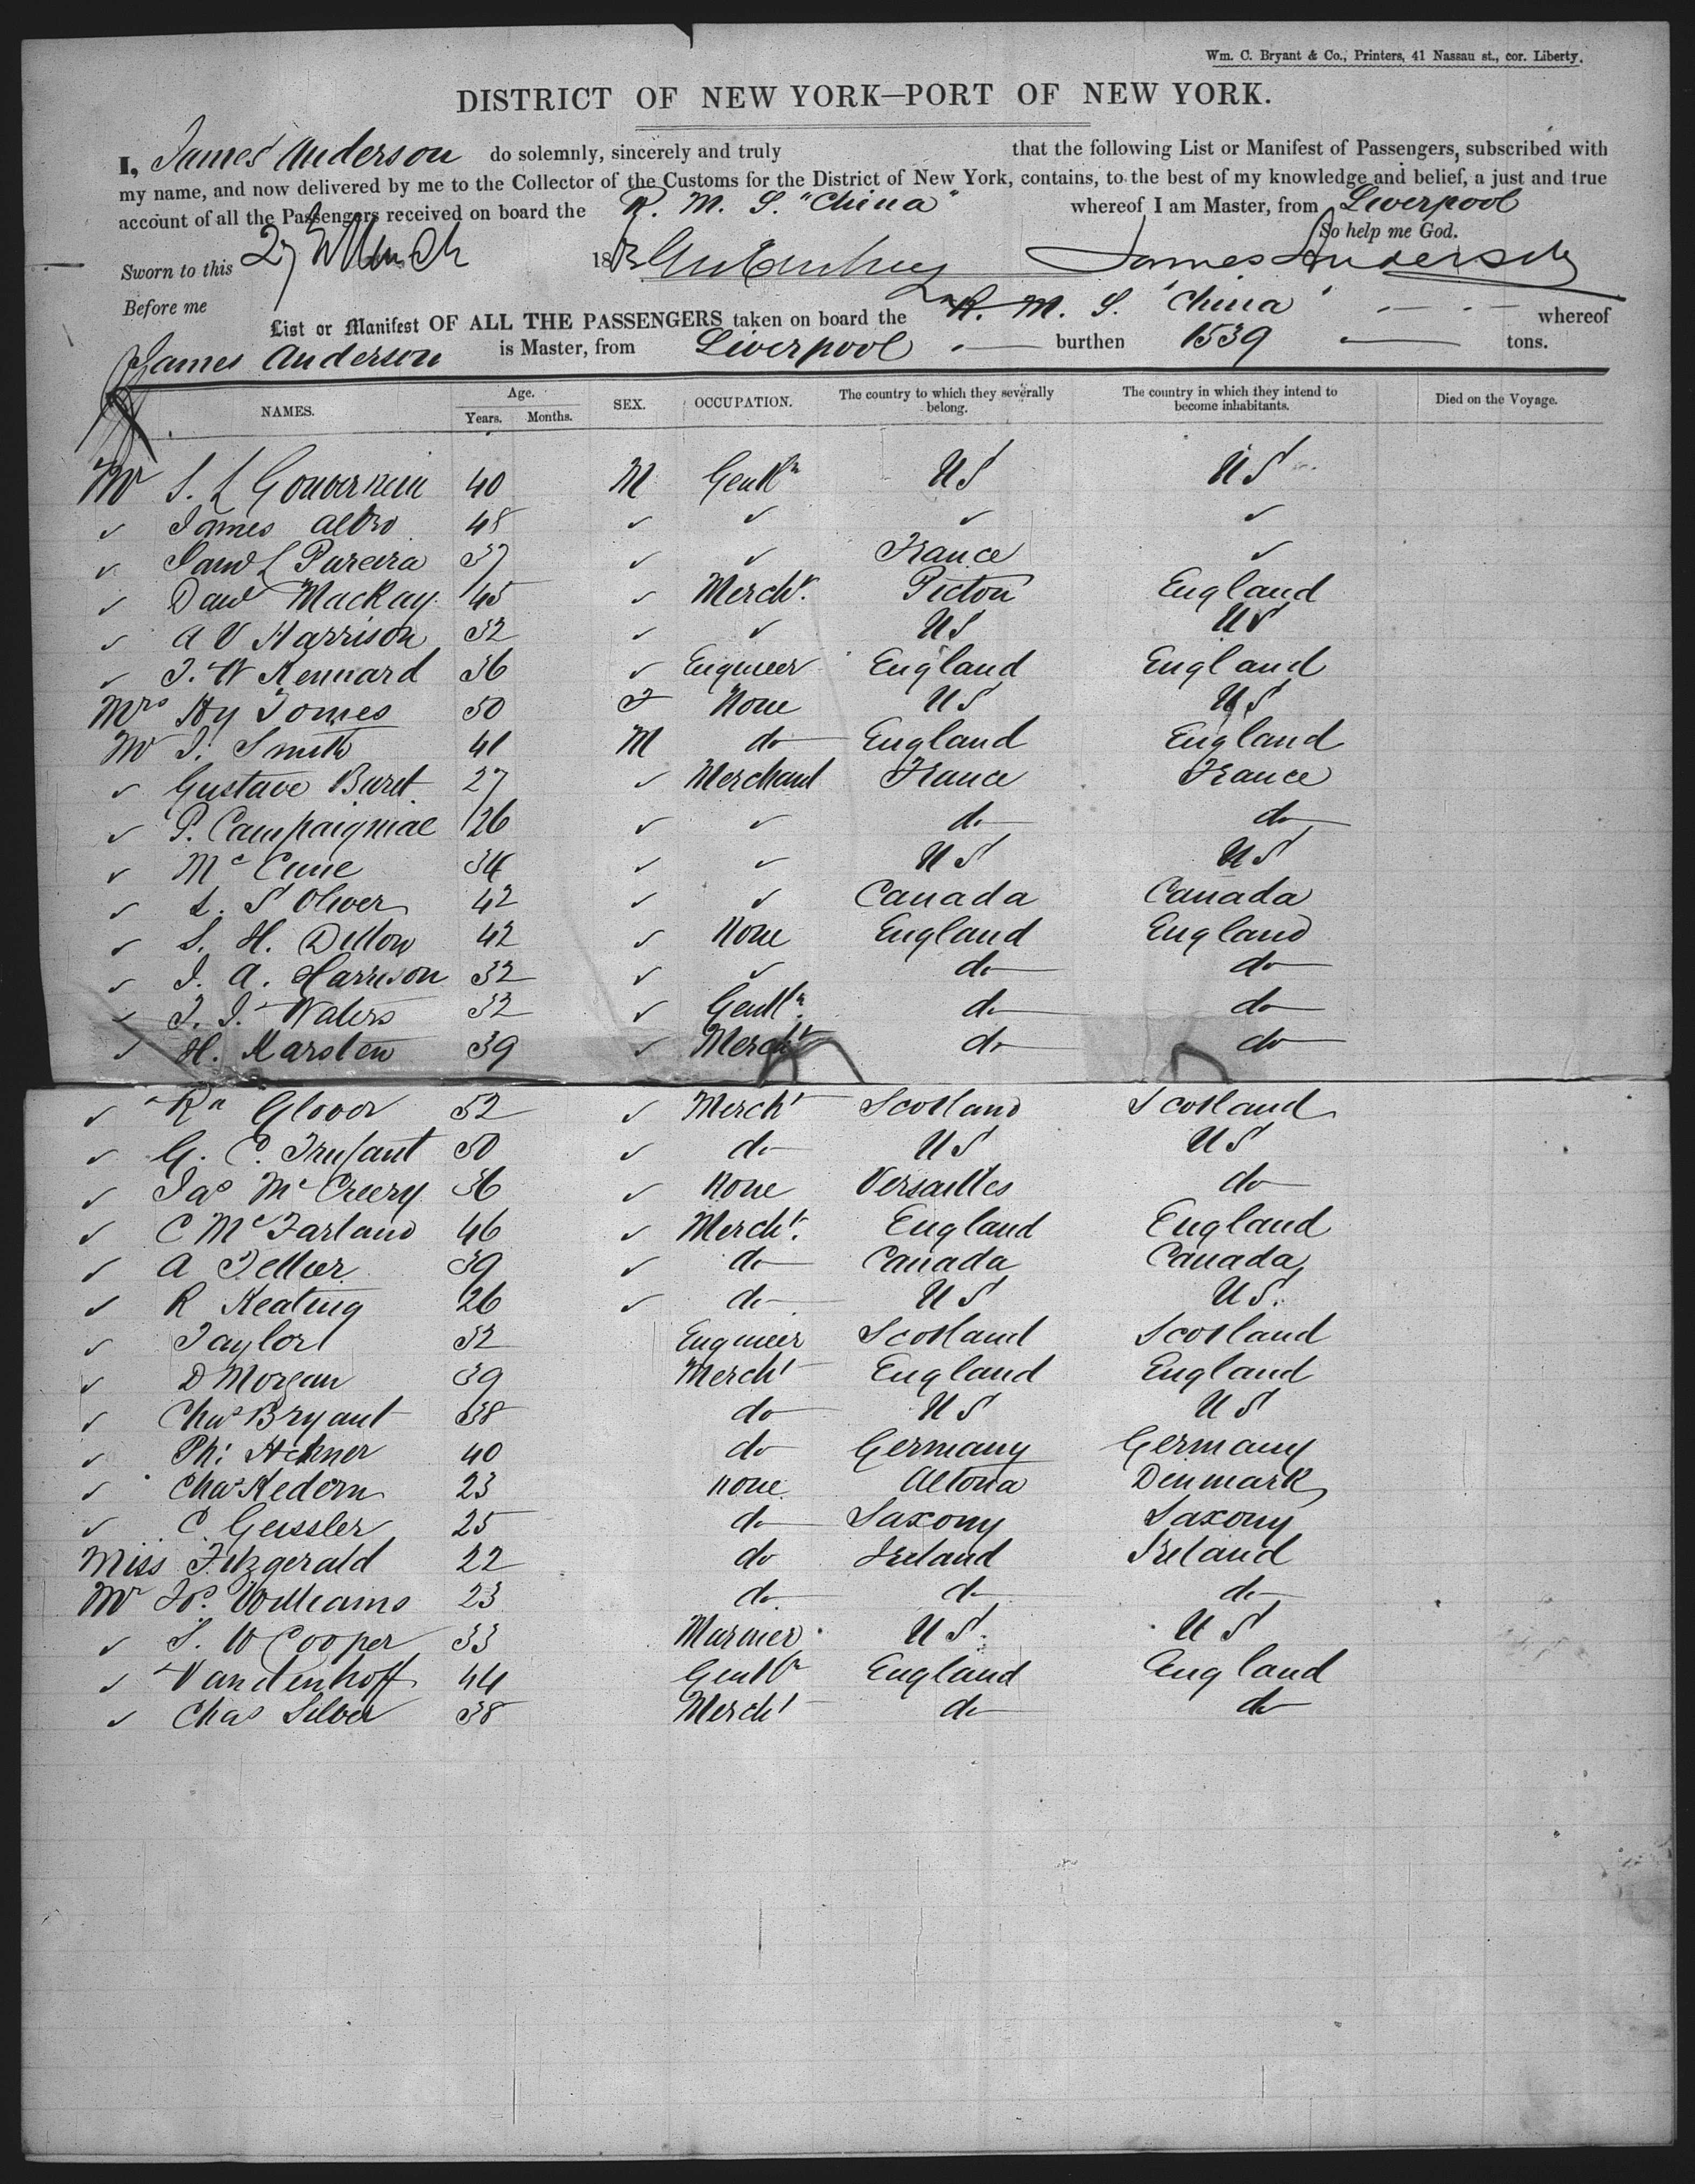 Wm. C. Bryant & Co., Printers, 41 Nassau st., cor. Liberty.
DISTRICT OF NEW YORK—PORT OF NEW YORK.
I, James Anderson do solemnly, sincerely and truly that the following List or Manifest of Passengers, subscribed with
my name, and now delivered by me to the Collector of the Customs for the District of New York, contains, to the best of my knowledge and belief, a just and true
account of all the Passengers received on board the R. M. S. "China" whereof I am Master, from Liverpool
So help me God.
Sworn to this 27 March 186 James Anderson
Before me
List or Manifest OF ALL THE PASSENGERS taken on board the R. M. S. "China" whereof
James Anderson is Master, from Liverpool burthen 1539 tons.
NAMES. Age. Years. Months. SEX. OCCUPATION. The country to which they severally belong. The country in which they intend to become inhabitants. Died on the Voyage.
Mr S. L Gouverneur 40 M Gentn US US
✓ James Albro 48 ✓ ✓ ✓ ✓
✓ Pareira 37 ✓ ✓ France ✓
✓ Davd Mackay 45 ✓ Mercht. Pictou England
✓ A V Harrison 32 ✓ ✓ US US
✓ T. W Kennard 36 ✓ Engineer England England
Mrs Hy Jones 50 F None US US
Mr J. Smith 41 M do England England
✓ Gustave Buret 27 ✓ Merchant France France
✓ P. Campaigniac 26 ✓ ✓ do do
✓ Mc Cune 34 ✓ ✓ US US
✓ L. S Oliver 42 ✓ ✓ Canada Canada
✓ S. H. Dillon 42 ✓ None England England
✓ J. A. Harrison 32 ✓ ✓ do do
✓ T. J. Waters 32 ✓ Gentn. do do
✓ H. Karsten 39 ✓ Mercht do do
✓ Glover 52 ✓ Mercht Scotland Scotland
✓ G. C. Trufant 50 ✓ do US US
✓ Jas McCreery 36 ✓ None Versailles do
✓ C McFarland 46 ✓ Mercht. England England
✓ A Tellier 39 ✓ do Canada Canada
✓ R Keating 26 ✓ do US US.
✓ Taylor 32 Engineer Scotland Scotland
✓ D Morgan 39 Mercht England England
✓ Chas Bryant 38 do US US
✓ Ph: Hehner 40 do Germany Germany
✓ Chas Kedern 23 none Altona Denmark
✓ C. Geissler 25 do Saxony Saxony
Miss Fitzgerald 22 do Ireland Ireland
Mr Jos. Williams 23 do do do
✓ S. W Cooper 33 Mariner US. US
✓ Vandenhoff 44 Gentn England England
✓ Chas Silver 38 Mercht do do